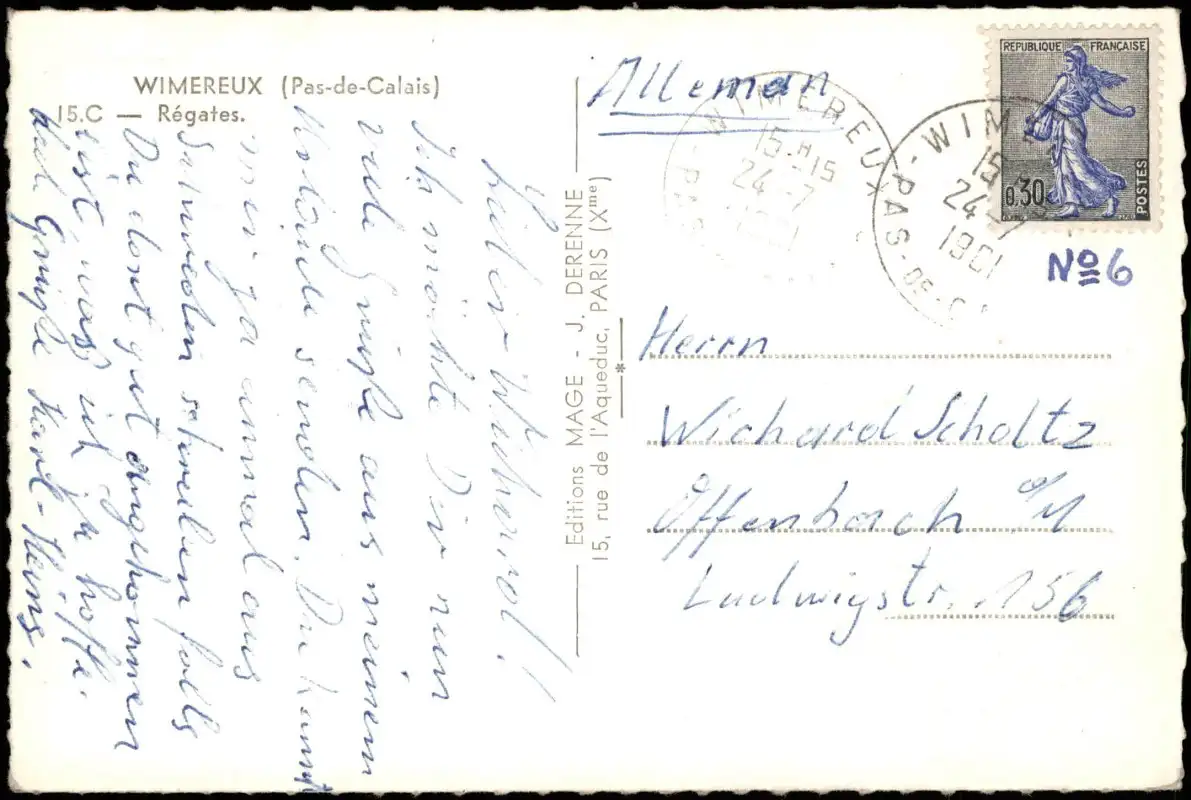 WIMEREUX (Pas-de-Calais)
15.C — Régates.
Lieber Wichard!
Ich möchte Dir nun
viele Grüße aus meinem
senden. Du kannst
mir ja einmal aus
schreiben falls
Du dort gut angekommen
bist, was ich ja hoffe.
Grüße Karl-Heinz.
Editions MAGE - J. DERENNE
15, rue de l'Aqueduc, PARIS (Xme)
*
Alleman
WIMEREUX
15 H 15
24-7
PAS
REPUBLIQUE FRANÇAISE
0,30
POSTES
WIM
15
24-7
1961
PAS-DE-CA
No 6
Herrn
Wichard Scholtz
Offenbach a/M
Ludwigstr. 156